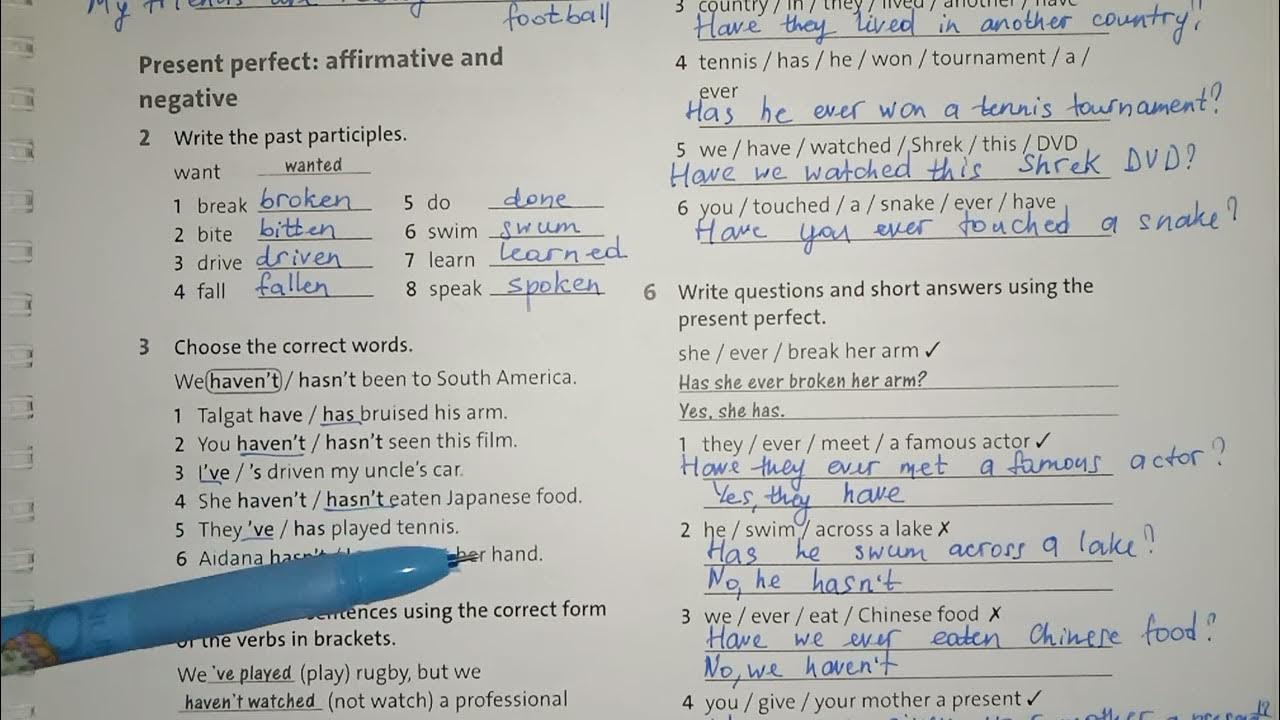 My friends are
football
Present perfect: affirmative and
negative
2 Write the past participles.
want wanted
1 break broken
2 bite bitten
3 drive driven
4 fall fallen
5 do done
6 swim swum
7 learn learned
8 speak spoken
3 Choose the correct words.
We haven't / hasn't been to South America.
1 Talgat have / has bruised his arm.
2 You haven't / hasn't seen this film.
3 I've / 's driven my uncle's car.
4 She haven't / hasn't eaten Japanese food.
5 They 've / has played tennis.
6 Aidana hasn't her hand.
sentences using the correct form
of the verbs in brackets.
We 've played (play) rugby, but we
haven't watched (not watch) a professional
3 country / in / they / lived / another / have
Have they lived in another country?
4 tennis / has / he / won / tournament / a /
ever
Has he ever won a tennis tournament?
5 we / have / watched / Shrek / this / DVD
Have we watched this Shrek DVD?
6 you / touched / a / snake / ever / have
Have you ever touched a snake?
6 Write questions and short answers using the
present perfect.
she / ever / break her arm ✓
Has she ever broken her arm?
Yes, she has.
1 they / ever / meet / a famous actor ✓
Have they ever met a famous actor?
Yes, they have
2 he / swim / across a lake ✗
Has he swum across a lake?
No, he hasn't
3 we / ever / eat / Chinese food ✗
Have we ever eaten Chinese food?
No, we haven't
4 you / give / your mother a present ✓